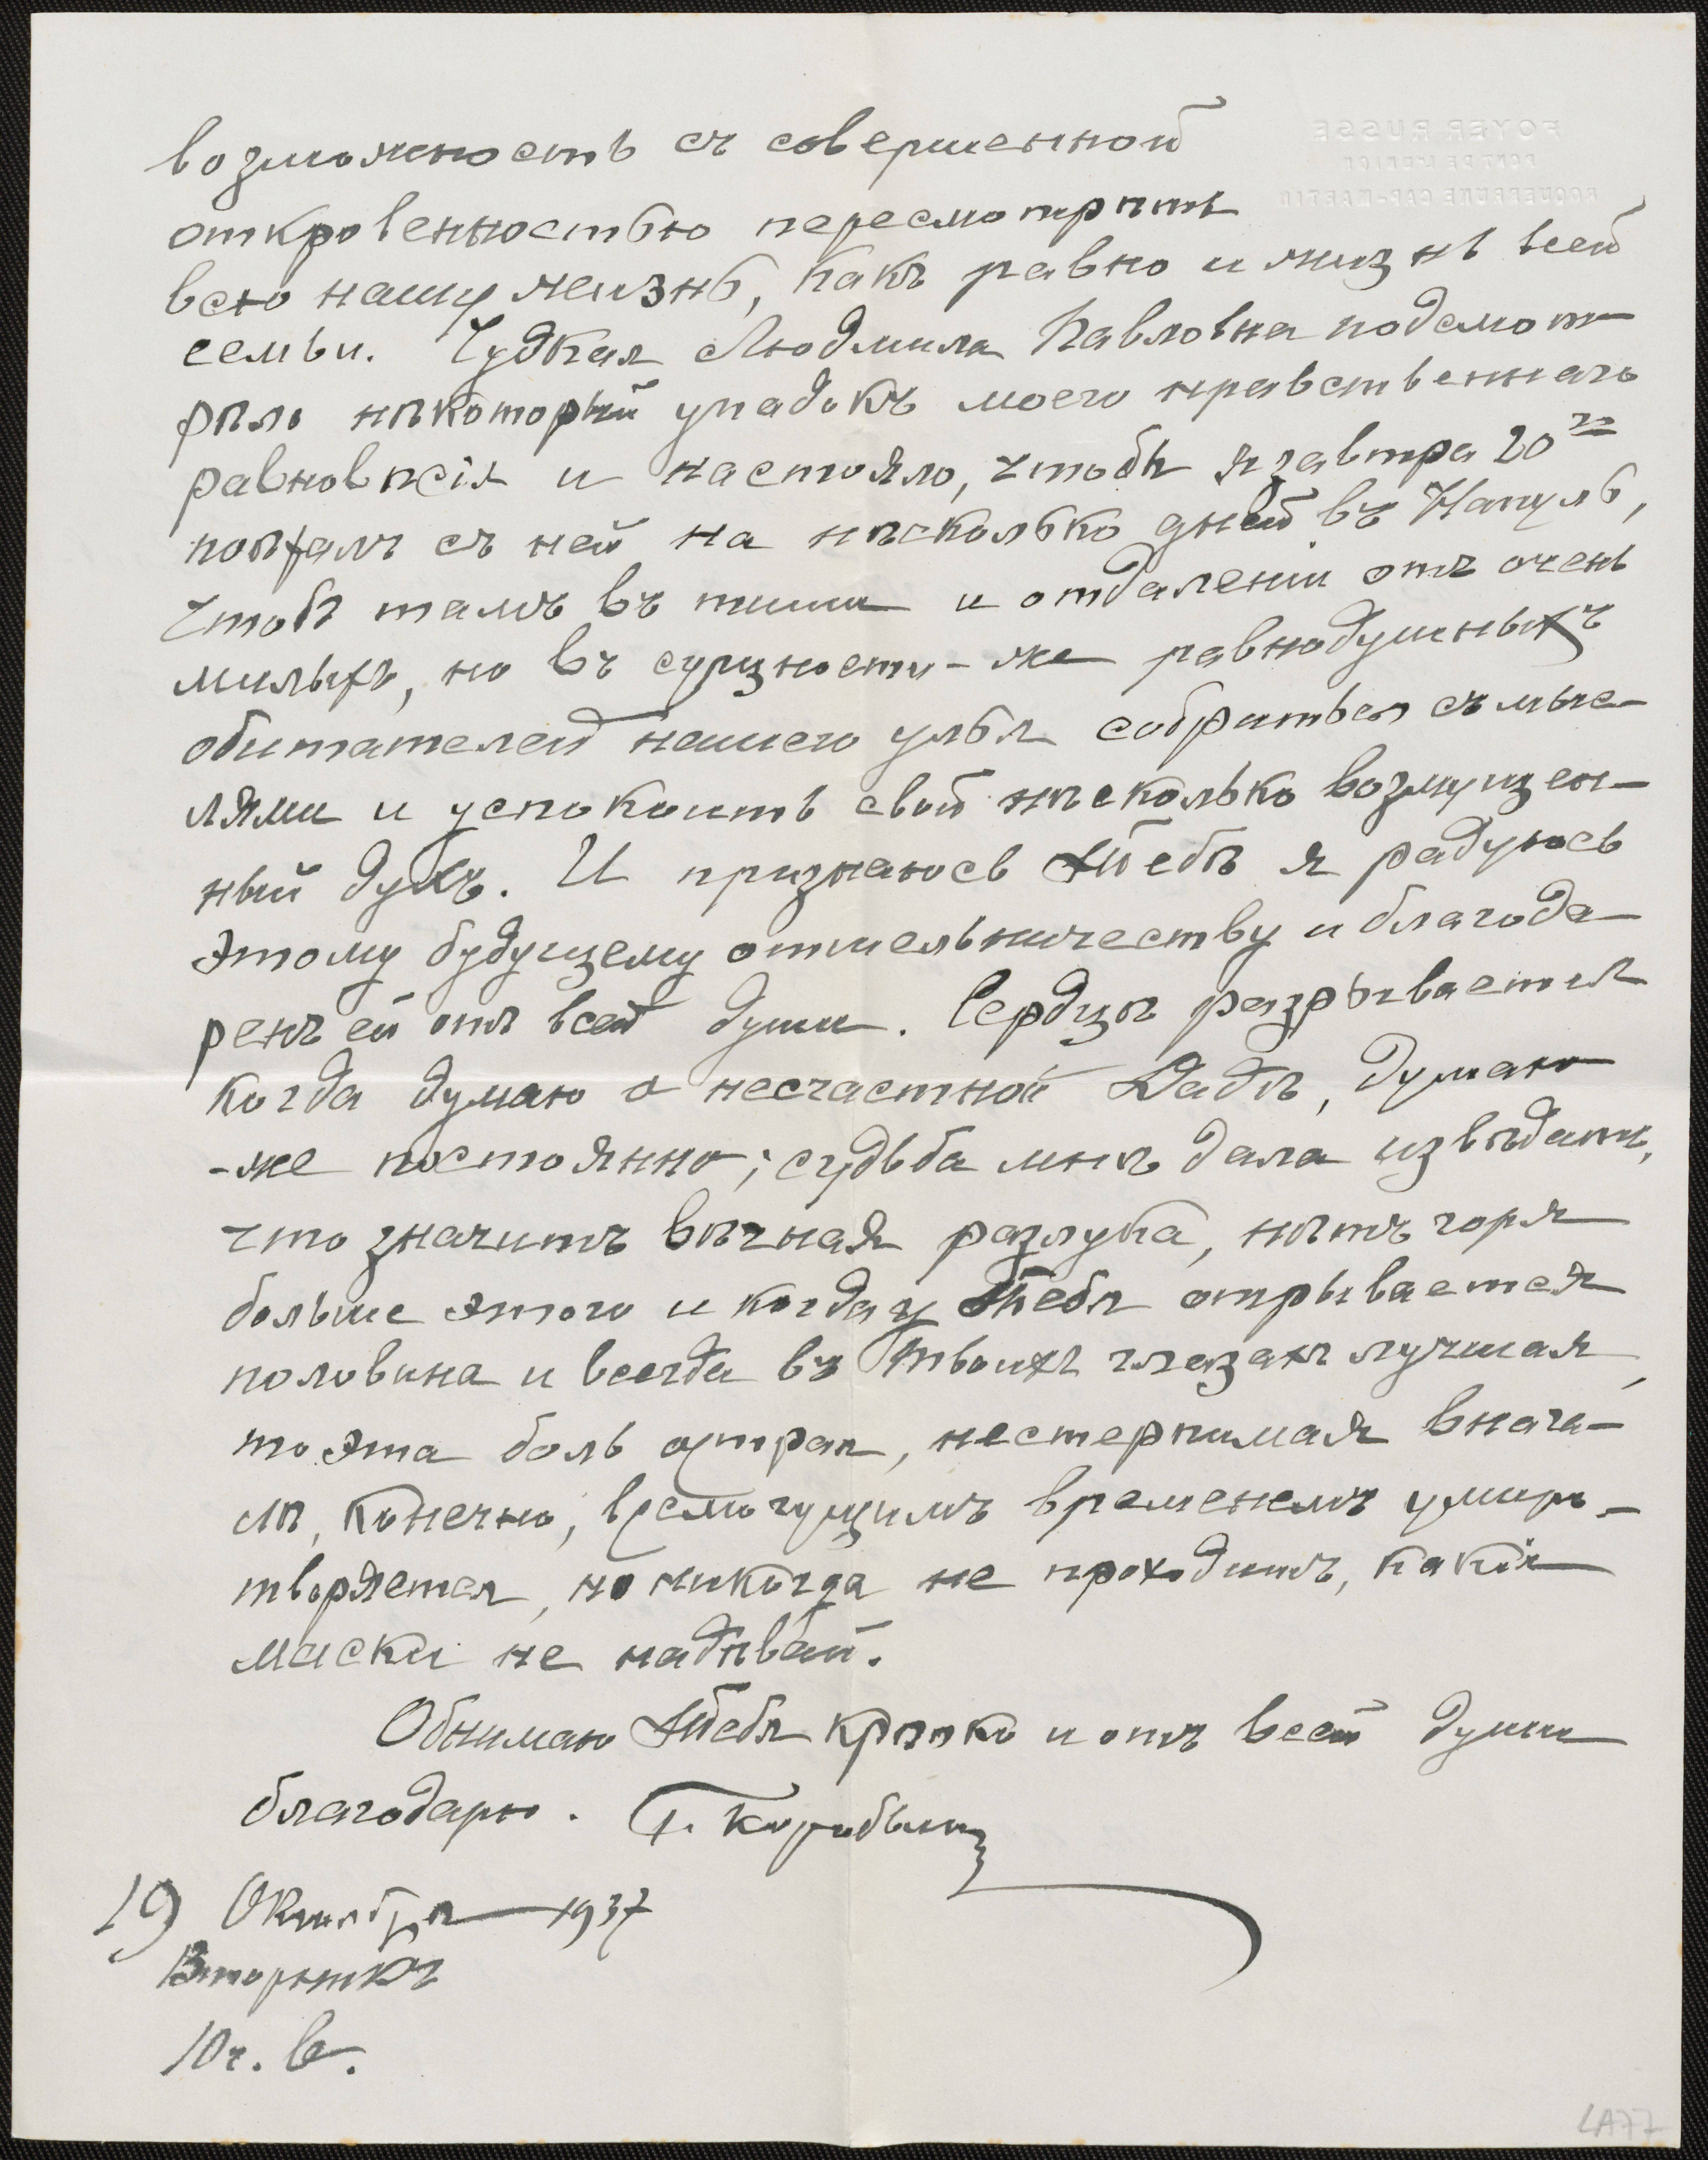 FOYER RUSSE
PONT DE L'UNION
ROQUEBRUNE CAP-MARTIN
возможность съ совершенной
откровенностью пересмотрѣть
всю нашу жизнь, какъ равно и жизнь всей
семьи. Чудная Людмила Павловна подсмот-
рѣла нѣкоторый упадокъ моего нравственнаго
равновѣсія и настояло, чтобы я завтра 20го
поѣхалъ съ ней на нѣсколько дней въ Напуль,
чтобы тамъ въ тиши и отдаленіи отъ очень
милыхъ, но въ сущности-же равнодушныхъ
обитателей нашего улья собраться съ мыс-
лями и успокоить свой нѣсколько возмущен-
ный духъ. И признаюсь Тебѣ я радуюсь
этому будущему отшельничеству и благода-
ренъ ей отъ всей души. Сердце разрывается
когда думаю о несчастной Дадѣ, думаю
-же постоянно; судьба мнѣ дала извѣдать,
что значитъ вѣчная разлука, нѣтъ горя
больше этого и когда у Тебя отрывается
половина и всегда въ Твоихъ глазахъ лучшая,
то эта боль острая, нестерпимая внача-
лѣ, конечно, всемогущимъ временемъ умиро-
творяется, но никогда не проходитъ, какія
маски не надѣвай.
Обнимаю Тебя крѣпко и отъ всей души
благодарю. Г. Коробьин
19 Октября 1937
Вторникъ
10 ч. в.
LA77